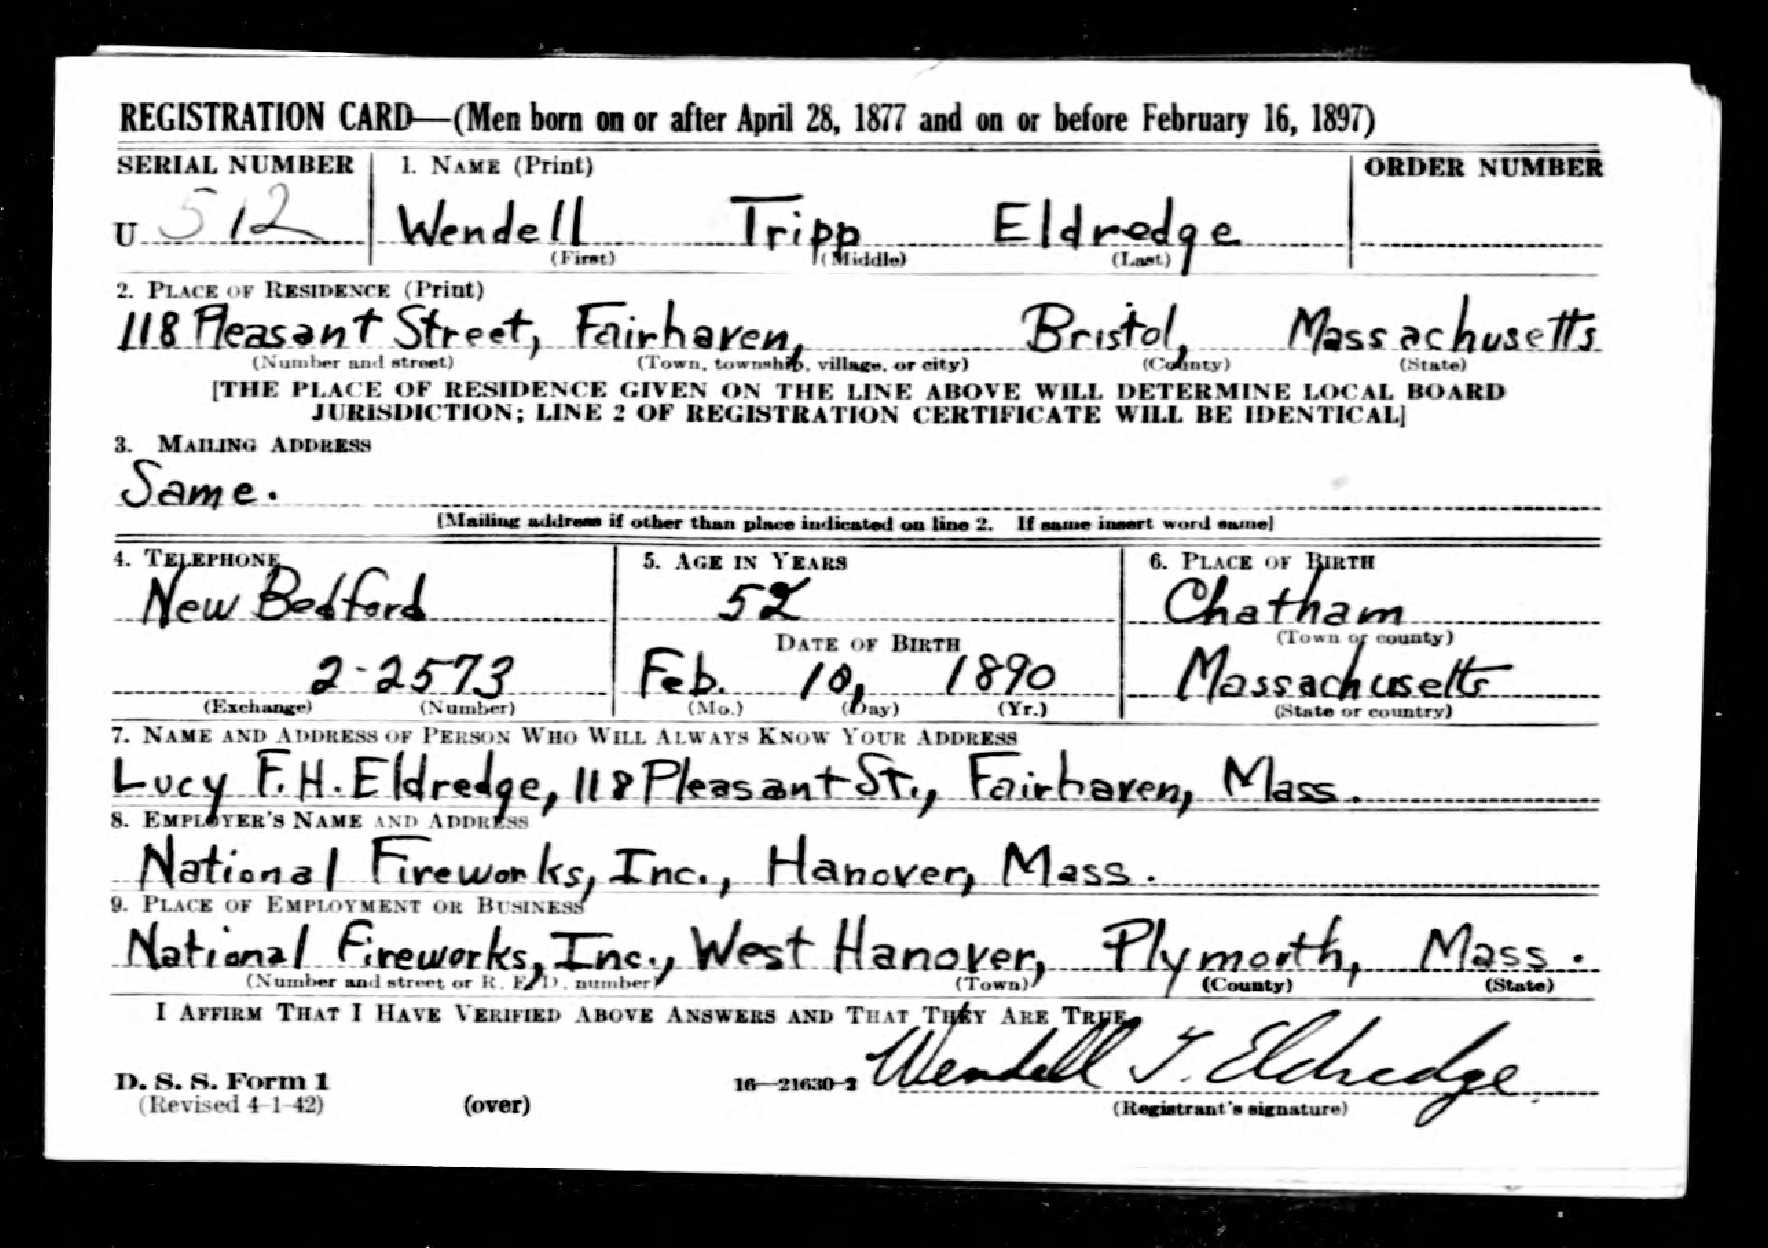 REGISTRATION CARD—(Men born on or after April 28, 1877 and on or before February 16, 1897)
SERIAL NUMBER 1. NAME (Print) ORDER NUMBER
U 512 Wendell Tripp Eldredge
(First) (Middle) (Last)
2. PLACE OF RESIDENCE (Print)
118 Pleasant Street, Fairhaven, Bristol, Massachusetts
(Number and street) (Town, township, village, or city) (County) (State)
[THE PLACE OF RESIDENCE GIVEN ON THE LINE ABOVE WILL DETERMINE LOCAL BOARD
JURISDICTION; LINE 2 OF REGISTRATION CERTIFICATE WILL BE IDENTICAL]
3. MAILING ADDRESS
Same.
[Mailing address if other than place indicated on line 2. If same insert word same]
4. TELEPHONE 5. AGE IN YEARS 6. PLACE OF BIRTH
New Bedford 52 Chatham
DATE OF BIRTH (Town or county)
2-2573 Feb. 10, 1890 Massachusetts
(Exchange) (Number) (Mo.) (Day) (Yr.) (State or country)
7. NAME AND ADDRESS OF PERSON WHO WILL ALWAYS KNOW YOUR ADDRESS
Lucy F. H. Eldredge, 118 Pleasant St., Fairhaven, Mass.
8. EMPLOYER'S NAME AND ADDRESS
National Fireworks, Inc., Hanover, Mass.
9. PLACE OF EMPLOYMENT OR BUSINESS
National Fireworks, Inc., West Hanover, Plymorth, Mass.
(Number and street or R. F. D. number) (Town) (County) (State)
I AFFIRM THAT I HAVE VERIFIED ABOVE ANSWERS AND THAT THEY ARE TRUE.
D. S. S. Form 1 16—21630-2 Wendell T. Eldredge
(Revised 4-1-42) (over) (Registrant's signature)